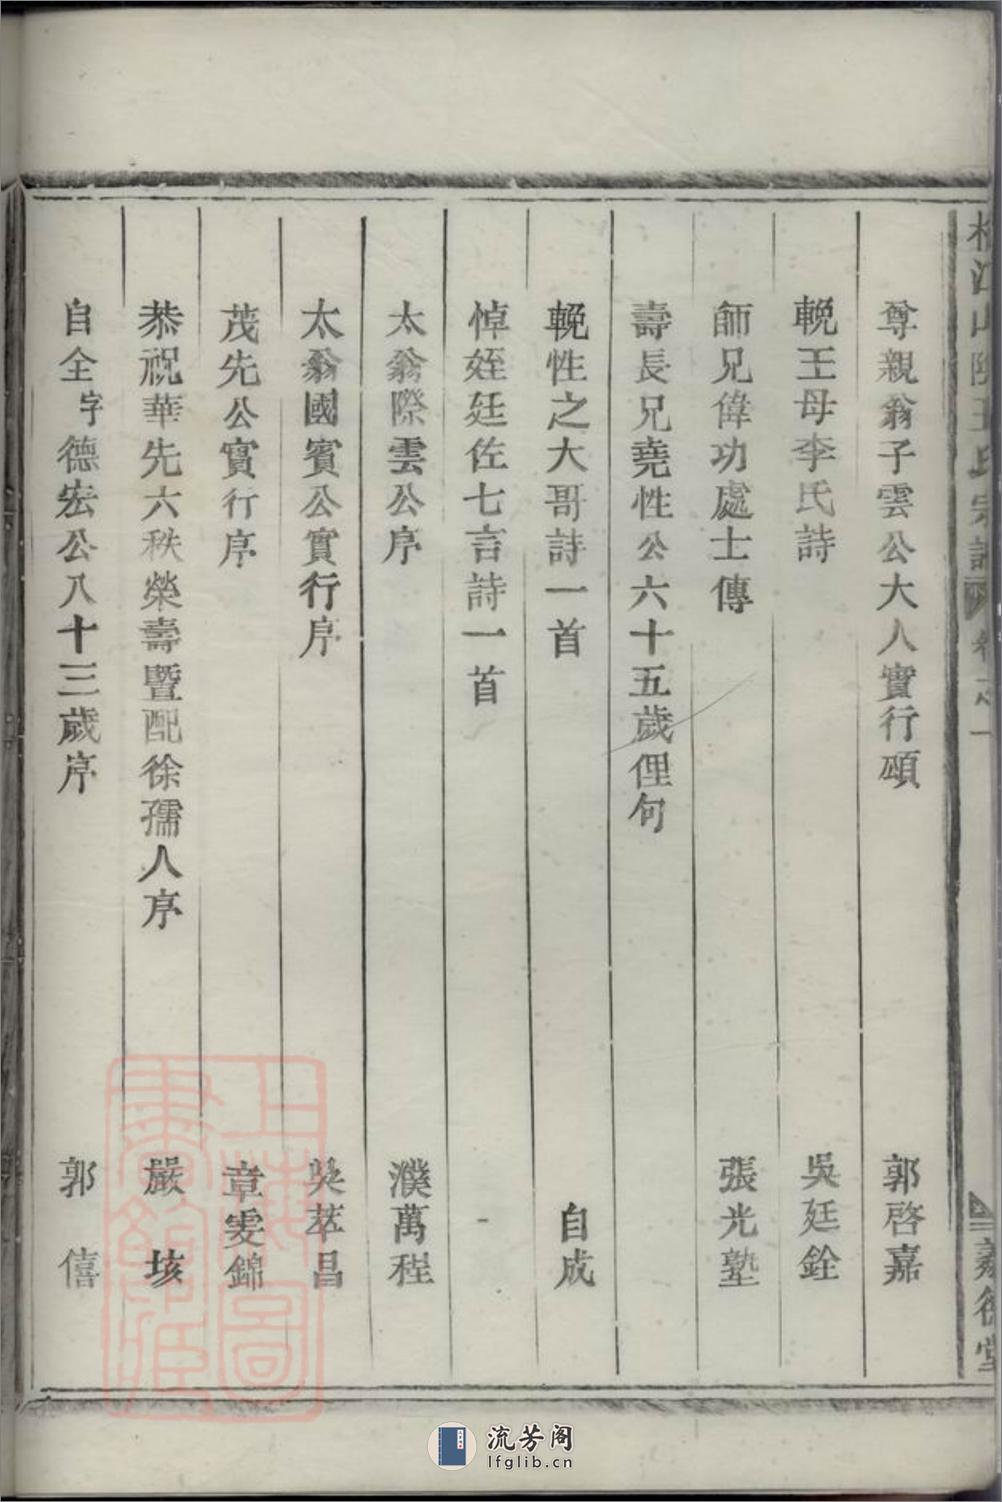 尊親翁子雲公大人實行頌 郭啓嘉
輓王母李氏詩 吳廷銓
師兄偉功處士傳 張光塾
壽長兄堯性公六十五歲俚句
輓性之大哥詩一首 自成
悼姪廷佐七言詩一首
太翁際雲公序 濮萬程
太翁國賓公實行序 吳萃昌
茂先公實行序 章雯錦
恭祝華先六秩榮壽暨配徐孺人序 嚴垓
自全字德宏公八十三歲序 郭僖
江山陰王氏宗譜 卷之一
三 義德堂
上海圖書館藏
流芳阁
lfglib.cn